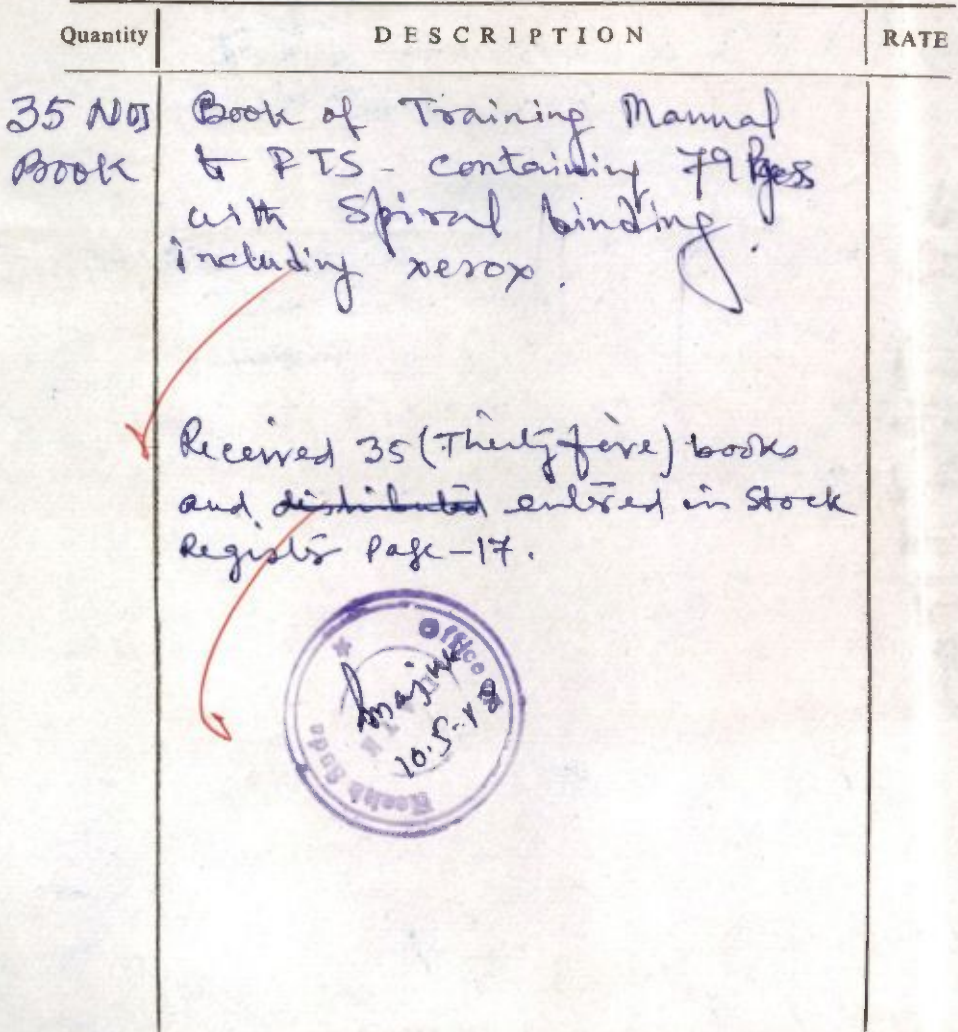 Quantity DESCRIPTION RATE
35 Nos Book of Training Manual
Book to PTS - containing 79 Pages
with Spiral binding
including xerox.
Received 35 (Thirty five) books
and distributed entered in Stock
Register Page-17.
Office
10.5.18
Health